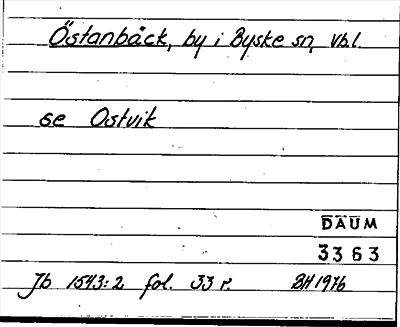 Östanbäck, by i Byske sn, Vb.l.
se Ostvik
DAUM
3363
Jb 1543:2 fol. 33 r. BH 1976